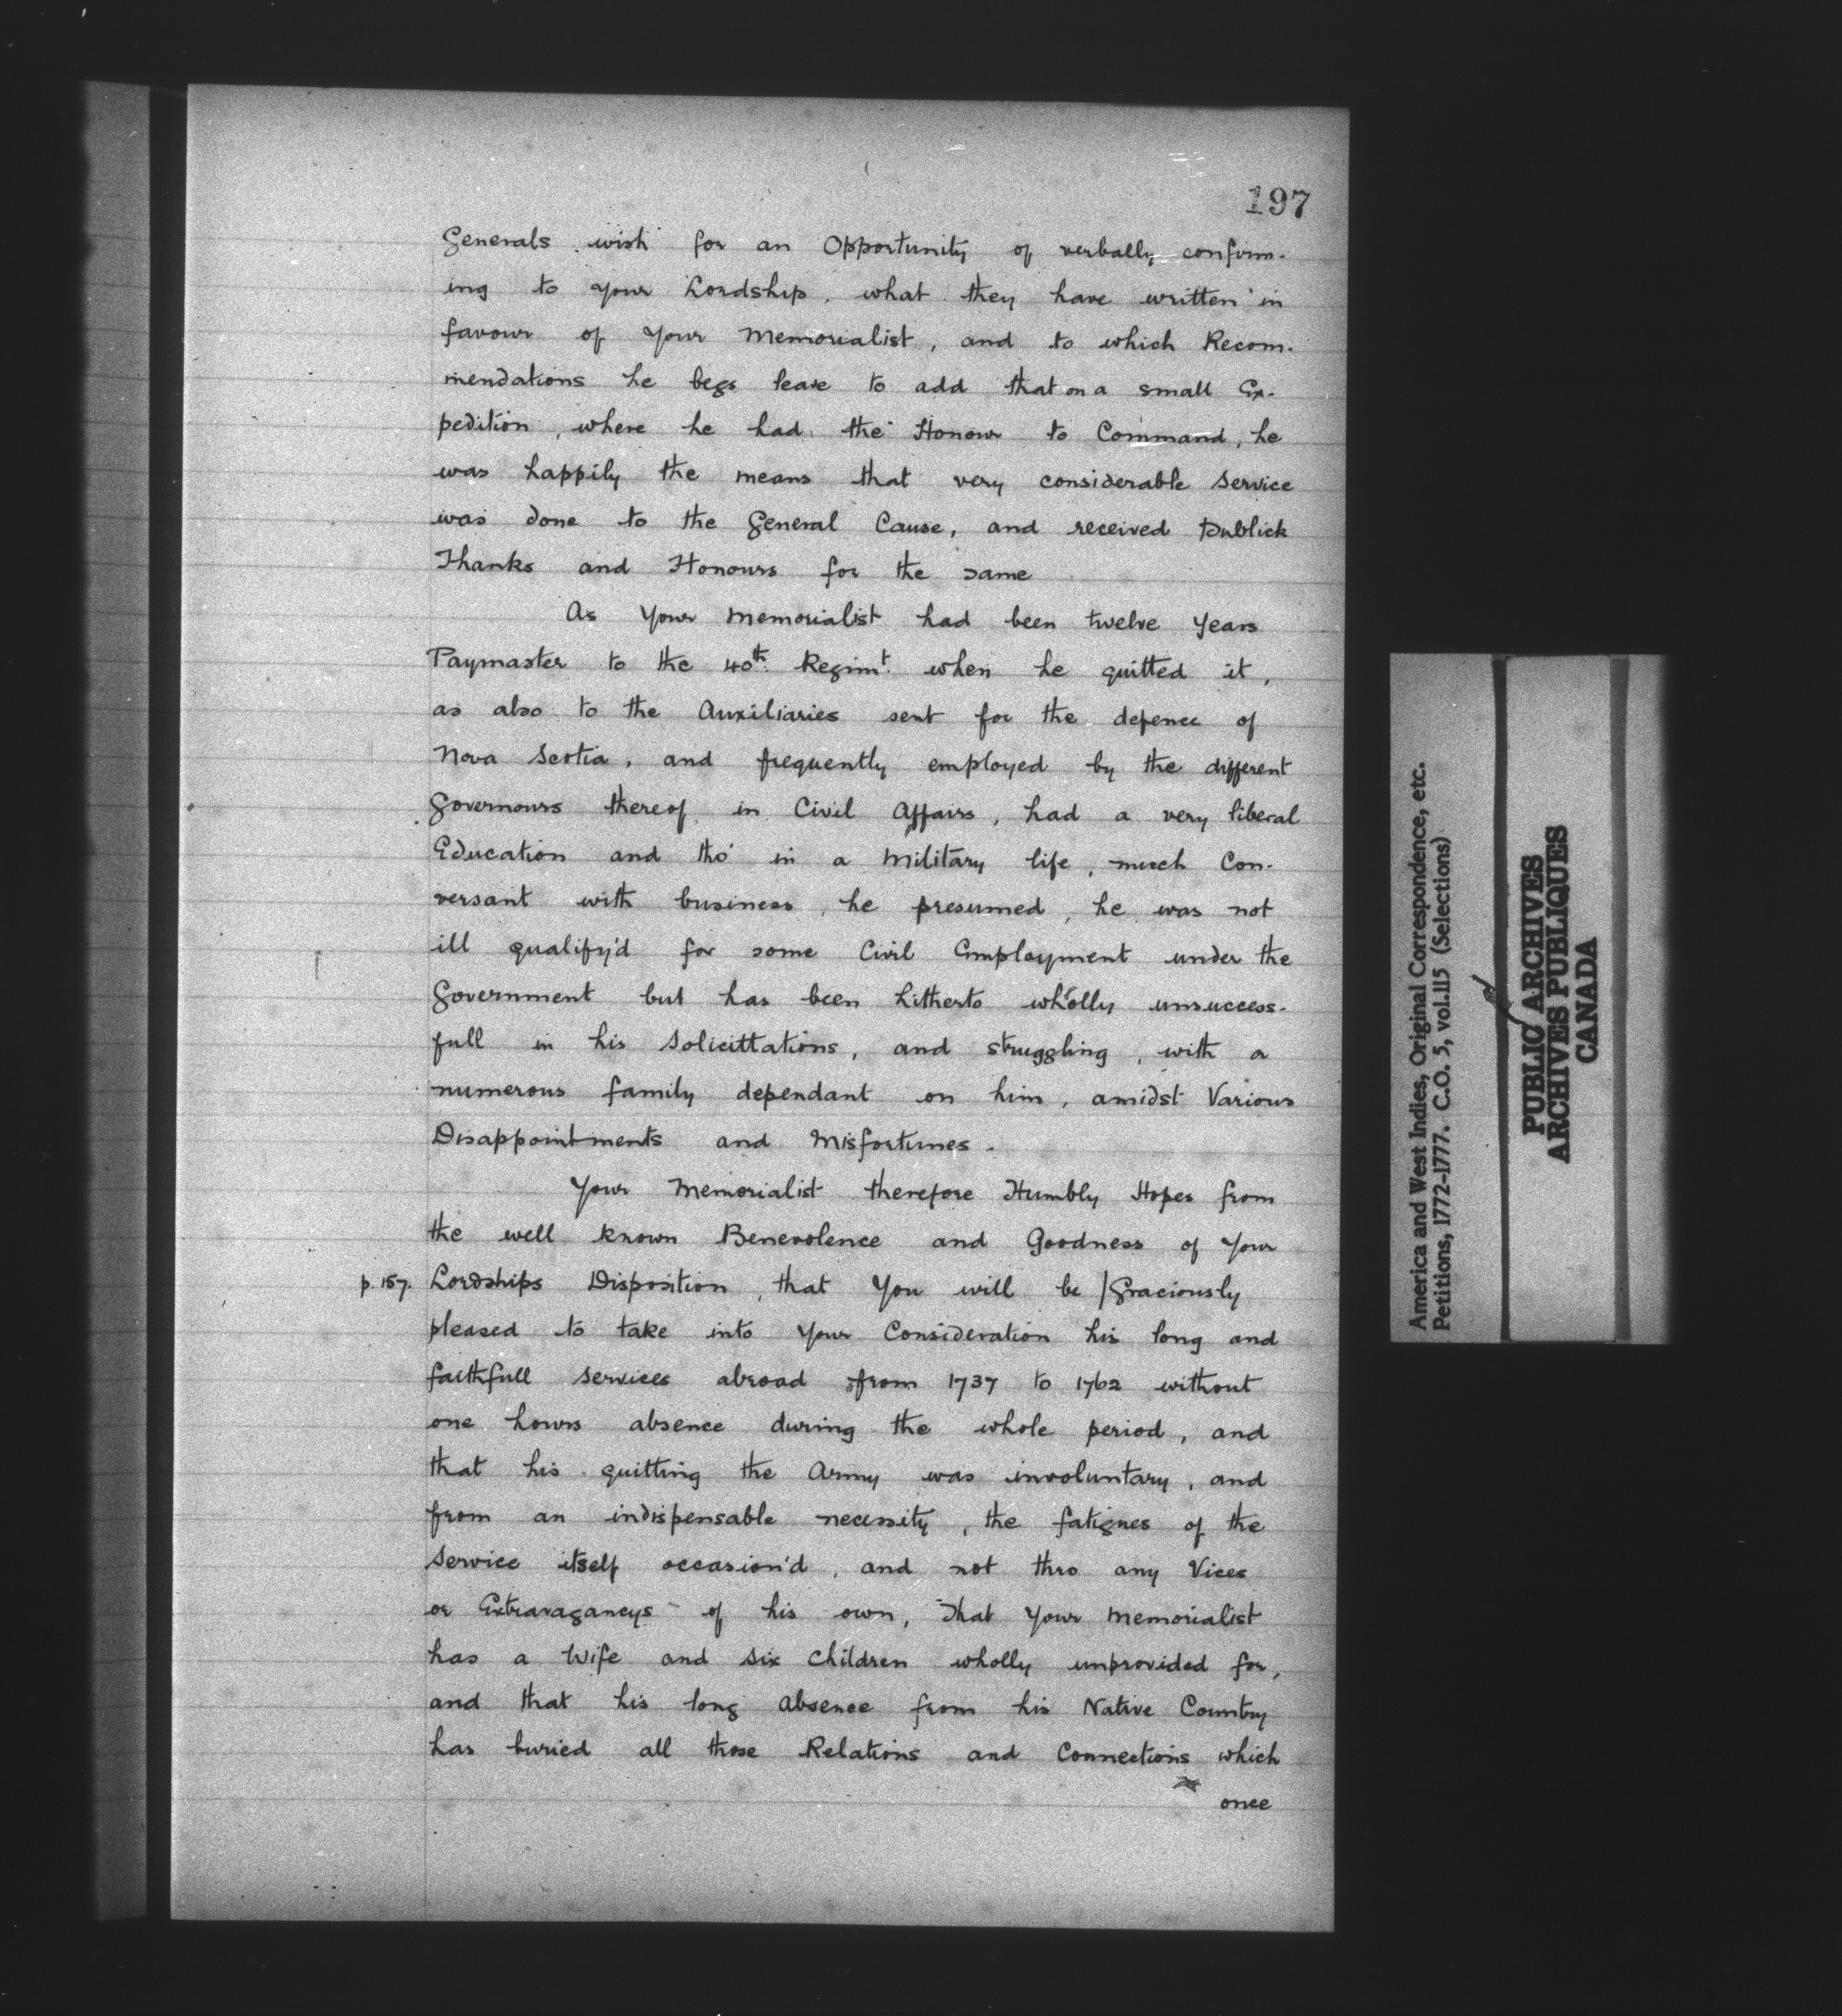 197
Generals wish for an Opportunity of verbally confirm-
ing to Your Lordship, what they have written in
favour of Your Memorialist, and to which Recom-
mendations he begs leave to add that on a small Ex-
pedition, where he had the Honour to Command, he
was happily the means that very considerable Service
was done to the General Cause, and received Publick
Thanks and Honours for the same
As Your Memorialist had been twelve Years
Paymaster to the 40th. Regimt. when he quitted it,
as also to the Auxiliaries sent for the defence of
Nova Scotia, and frequently employed by the different
Governours thereof in Civil Affairs, had a very liberal
Education and tho' in a Military life, much Con-
versant with business, he presumed, he was not
ill qualify'd for some Civil Employment under the
Government but has been hitherto wholly unsuccess-
full in his Solicittations, and struggling, with a
numerous family dependant on him, amidst Various
Disappointments and Misfortunes.
Your Memorialist therefore Humbly Hopes from
the well known Benevolence and Goodness of Your
p. 157. Lordships Disposition, that You will be /Graciously
pleased to take into Your Consideration his long and
faithfull Services abroad from 1737 to 1762 without
one hours absence during the whole period, and
that his quitting the Army was involuntary, and
from an indispensable necessity, the fatigues of the
Service itself occasion'd, and not thro any Vices
or Extravagancys of his own, That Your Memorialist
has a Wife and Six Children wholly unprovided for,
and that his long absence from his Native Country
has buried all those Relations and Connections which
once
America and West Indies, Original Correspondence, etc.
Petitions, 1772-1777. C.O. 5, vol.115 (Selections)
PUBLIC ARCHIVES
ARCHIVES PUBLIQUES
CANADA